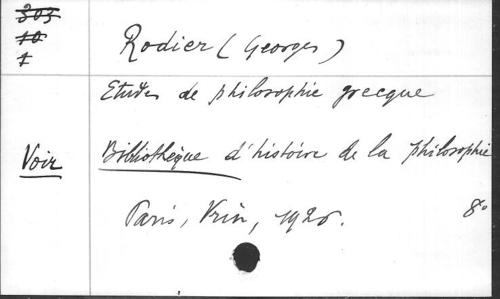 303
10
1
Rodier (Georges)
Etudes de philosophie grecque
Voir Bibliothèque d'histoire de la philosophie
Paris, Vrin, 1926. 8°